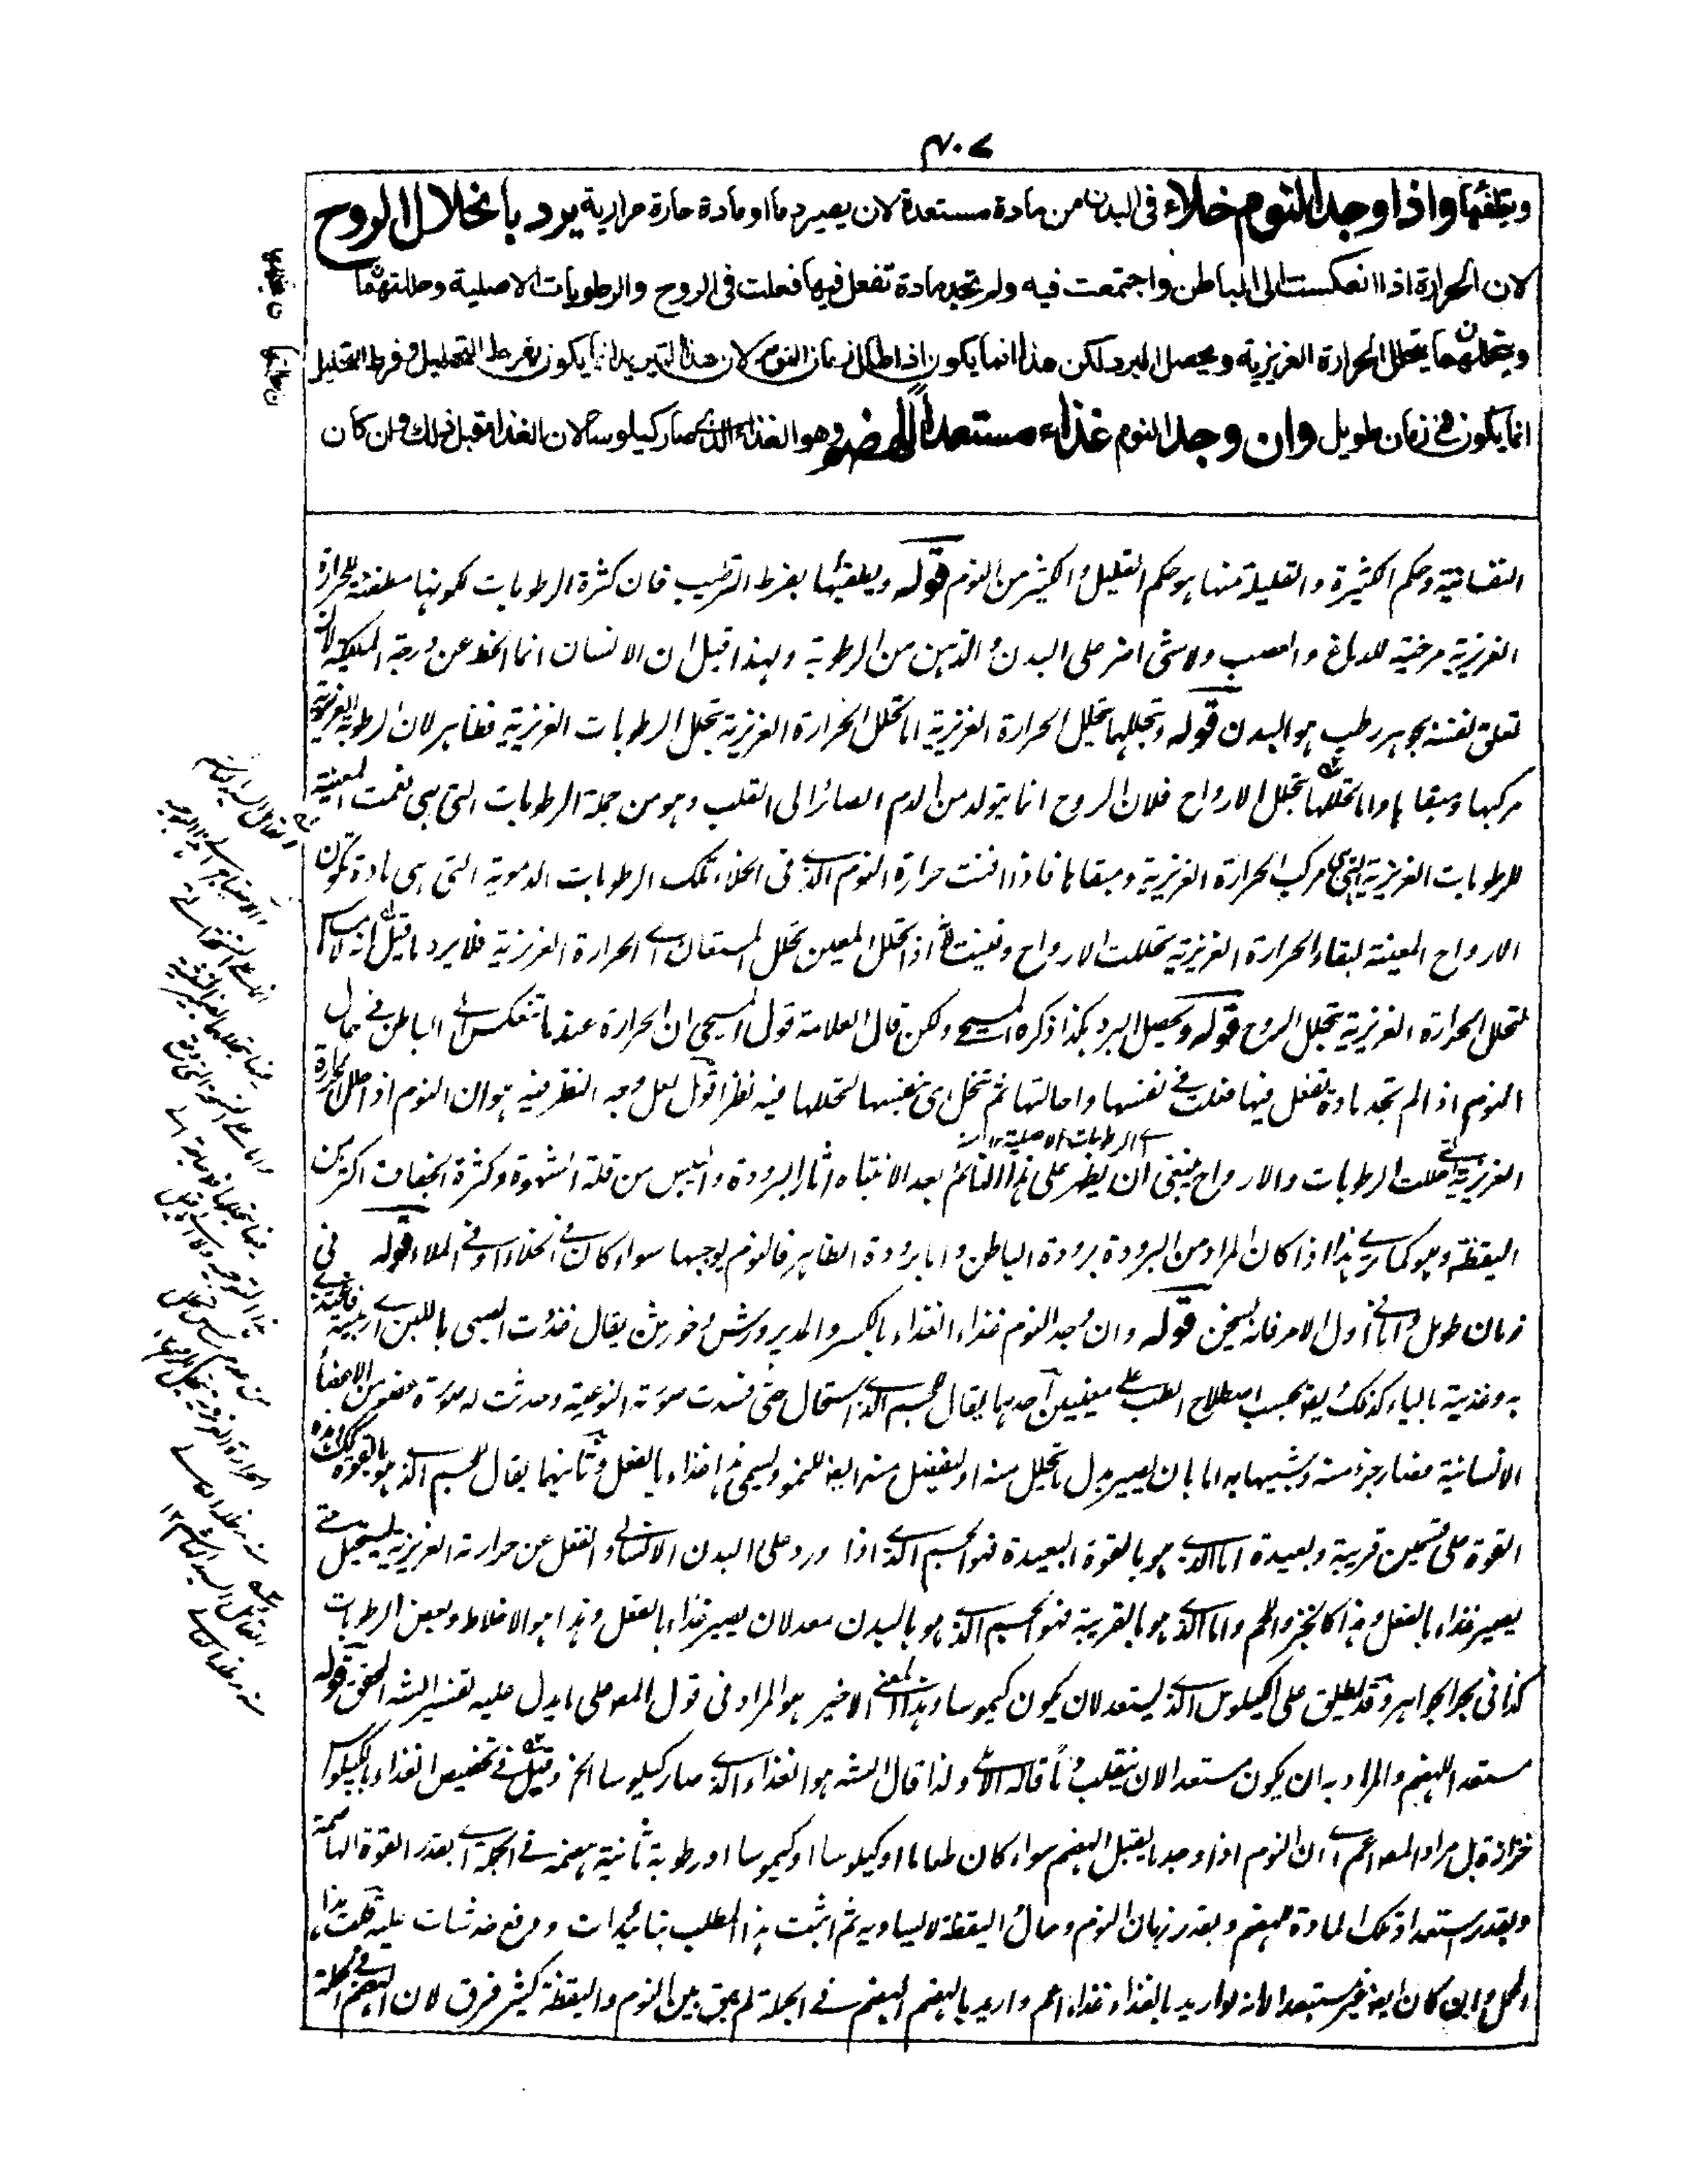 ٤٠٧
ويطفئها واذا وجد النوم خلاء فى البدن من مادة مستعدة لان يصير دما او مادة حارة مرارية يرد بانحلال الروح
لان الحرارة اذا انعكست الى الباطن واجتمعت فيه ولم تجد مادة تفعل فيها فعلت فى الروح والرطوبات الاصلية وحللتهما
وبتحللهما يتحلل الحرارة الغريزية ويحصل البرد لكن هذا انما يكون اذا طال زمان النوم لان هذا التبريد انما يكون بفرط التحليل وفرط التحليل
انما يكون فى زمان طويل وان وجد النوم غذاء مستعدا للهضم وهو الغذاء الذى صار كيلوسا لان الغذاء قبل ذلك وان كان
النفسانية وحكم الكثيرة والقليلة منها هو حكم القليل والكثير من النوم قوله ويطفئها بفرط الترطيب فان كثرة الرطوبات لكونها مطفئة للحرارة
الغريزية مرخية للدماغ والعصب ولا شئ اضر على البدن والذهن من الرطوبة ولهذا قيل ان الانسان انما انحط عن درجة الملكية لان
تعلق نفسه بجوهر رطب هو البدن قوله وبتحللهما يتحلل الحرارة الغريزية اما تحلل الحرارة الغريزية بتحلل الرطوبات الغريزية فظاهر لان الرطوبة الغريزية
مركبها ومبقاها واما تحللها بتحلل الارواح فلان الروح انما يتولد من الدم الصائر الى القلب وهو من جملة الرطوبات التى هى نعمت المعينة
للرطوبات الغريزية التى هى مركب الحرارة الغريزية ومبقاها فاذا افنت حرارة النوم الذى فى الخلاء تلك الرطوبات الدموية التى هى مادة تكون
الارواح المعينة لبقاء الحرارة الغريزية تحللت الارواح وفنيت اذ تحلل المعين تحلل المستعان اى الحرارة الغريزية فلا يرد ما قيل انه لا مساس
لتحلل الحرارة الغريزية بتحلل الروح قوله ويحصل البرد هكذا ذكره المسيحى ولكن قال العلامة قول المسيحى ان الحرارة عند ما تنعكس الى الباطن فى حال
النوم اذا لم تجد مادة تفعل فيها فعلت فى نفسها واحالتها ثم تحلل هى نفسها لتحللها فيه نظر اقول لعل وجه النظر فيه هو ان النوم اذا حلل الحرارة
اى الرطوبات الاصلية ١٢ منه
الغريزية حللت الرطوبات والارواح فينبغى ان يظهر على هذا النائم بعد الانتباه اثار البرودة واليبس من قلة الشهوة وكثرة الجفاف اكثر من
اليقظة وهو كما ترى هذا اذا كان المراد من البرودة برودة الباطن واما برودة الظاهر فالنوم يوجبها سواء كان فى الخلاء او فى الملاء قوله فى
زمان طويل واما فى اول الامر فانه يسخن قوله وان وجد النوم غذاء الغذاء بالكسر والمد پرورش وخورش يقال غذوت الصبى باللبن اى ربيته
به وغذيته بالياء كذلك يقع بحسب اصطلاح الطب على معنيين احدهما يقال لجسم الذى استحال حتى فسدت صورته النوعية وحدثت له صورة عضو من الاعضاء
الانسانية فصار جزء منه وشبيها به اما بان يصير بدل ما تحلل منه او يفضل منه ايضا للنمو ويسمى هذا غذاء بالفعل وثانيهما يقال لجسم الذى هو بالقوة كذلك وهذه
القوة على قسمين قريبة وبعيدة اما الذى هو بالقوة البعيدة فهو الجسم الذى اذا ورد على البدن الانسانى وانفعل عن حرارته الغريزية يستحيل حتى
يصير غذاء بالفعل وهذا كالخبز واللحم واما الذى هو بالقريبة فهو الجسم الذى هو بالبدن معد لان يصير غذاء بالفعل وهذا هو الاخلاط وبعض الرطوبات
كذا فى بحر الجواهر وقد يطلق على الكيلوس الذى يستعد لان يكون كيموسا وهذا المعنى الاخير هو المراد فى قول المص على ما يدل عليه تفسير الشه المحقق قوله
مستعدا للهضم والمراد به ان يكون مستعدا لان ينقلب دما قاله الاملى ولذا قال الشه هو الغذاء الذى صار كيلوسا الخ وقيل فى تخصيص الغذاء بالكيلوس
خزازة بل مراد المص اعم اى ان النوم اذا وجد ما يقبل الهضم سواء كان طعاما او كيلوسا او كيموسا او رطوبة ثانية يهضمه فى الجملة اى بقدر القوة الهاضمة
وبقدر استعداد تلك المادة للهضم وبقدر زمان النوم وحال اليقظة لا يساويه ثم اثبت هذا المطلب بتائيدات ودفع خدشات عليه قلت هذا
الحمل وان كان ايضا غير مستبعد الا انه لو اريد بالغذاء غذاء اعم واريد بالهضم الهضم فى الجملة لم يبق بين النوم واليقظة كثير فرق لان الهضم فى الجملة